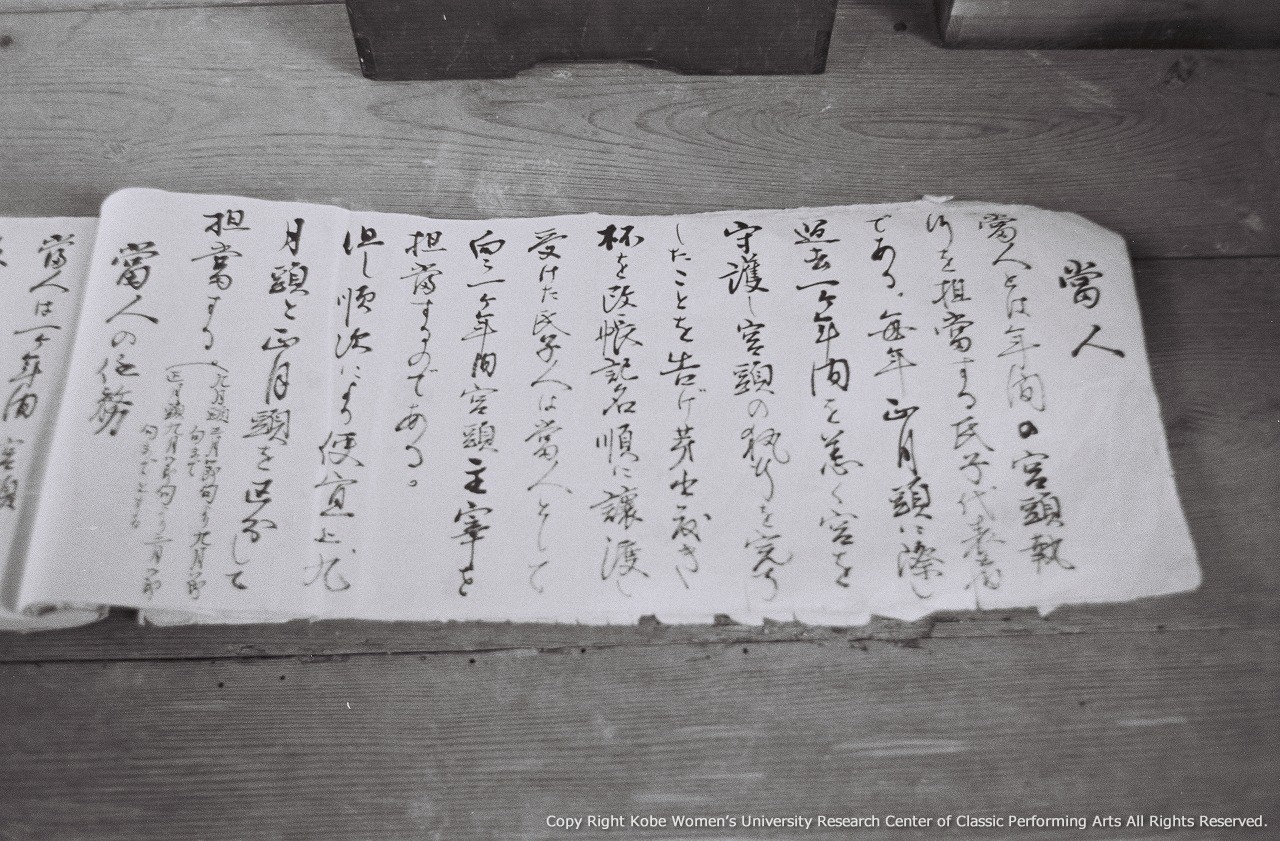 當人
當人とは年間の宮頭執
行を担當する氏子代表者
である、毎年正月頭に際し
過去一ヶ年間を恙く宮を
守護し宮頭の執行を完了
したことを告げ
杯を改帳記名順に譲渡し
受けた氏子人は當人として
向う一ヶ年間宮頭主宰を
担當するのである。
但し順次により便宜上、九
月頭と正月頭を区分して
担當する
九月頭 三月節句より九月節
句まで
正月頭 九月節句より三月節
句までとする
當人の任務
當人は一ヶ年間宮頭
Copy Right Kobe Women's University Research Center of Classic Performing Arts All Rights Reserved.